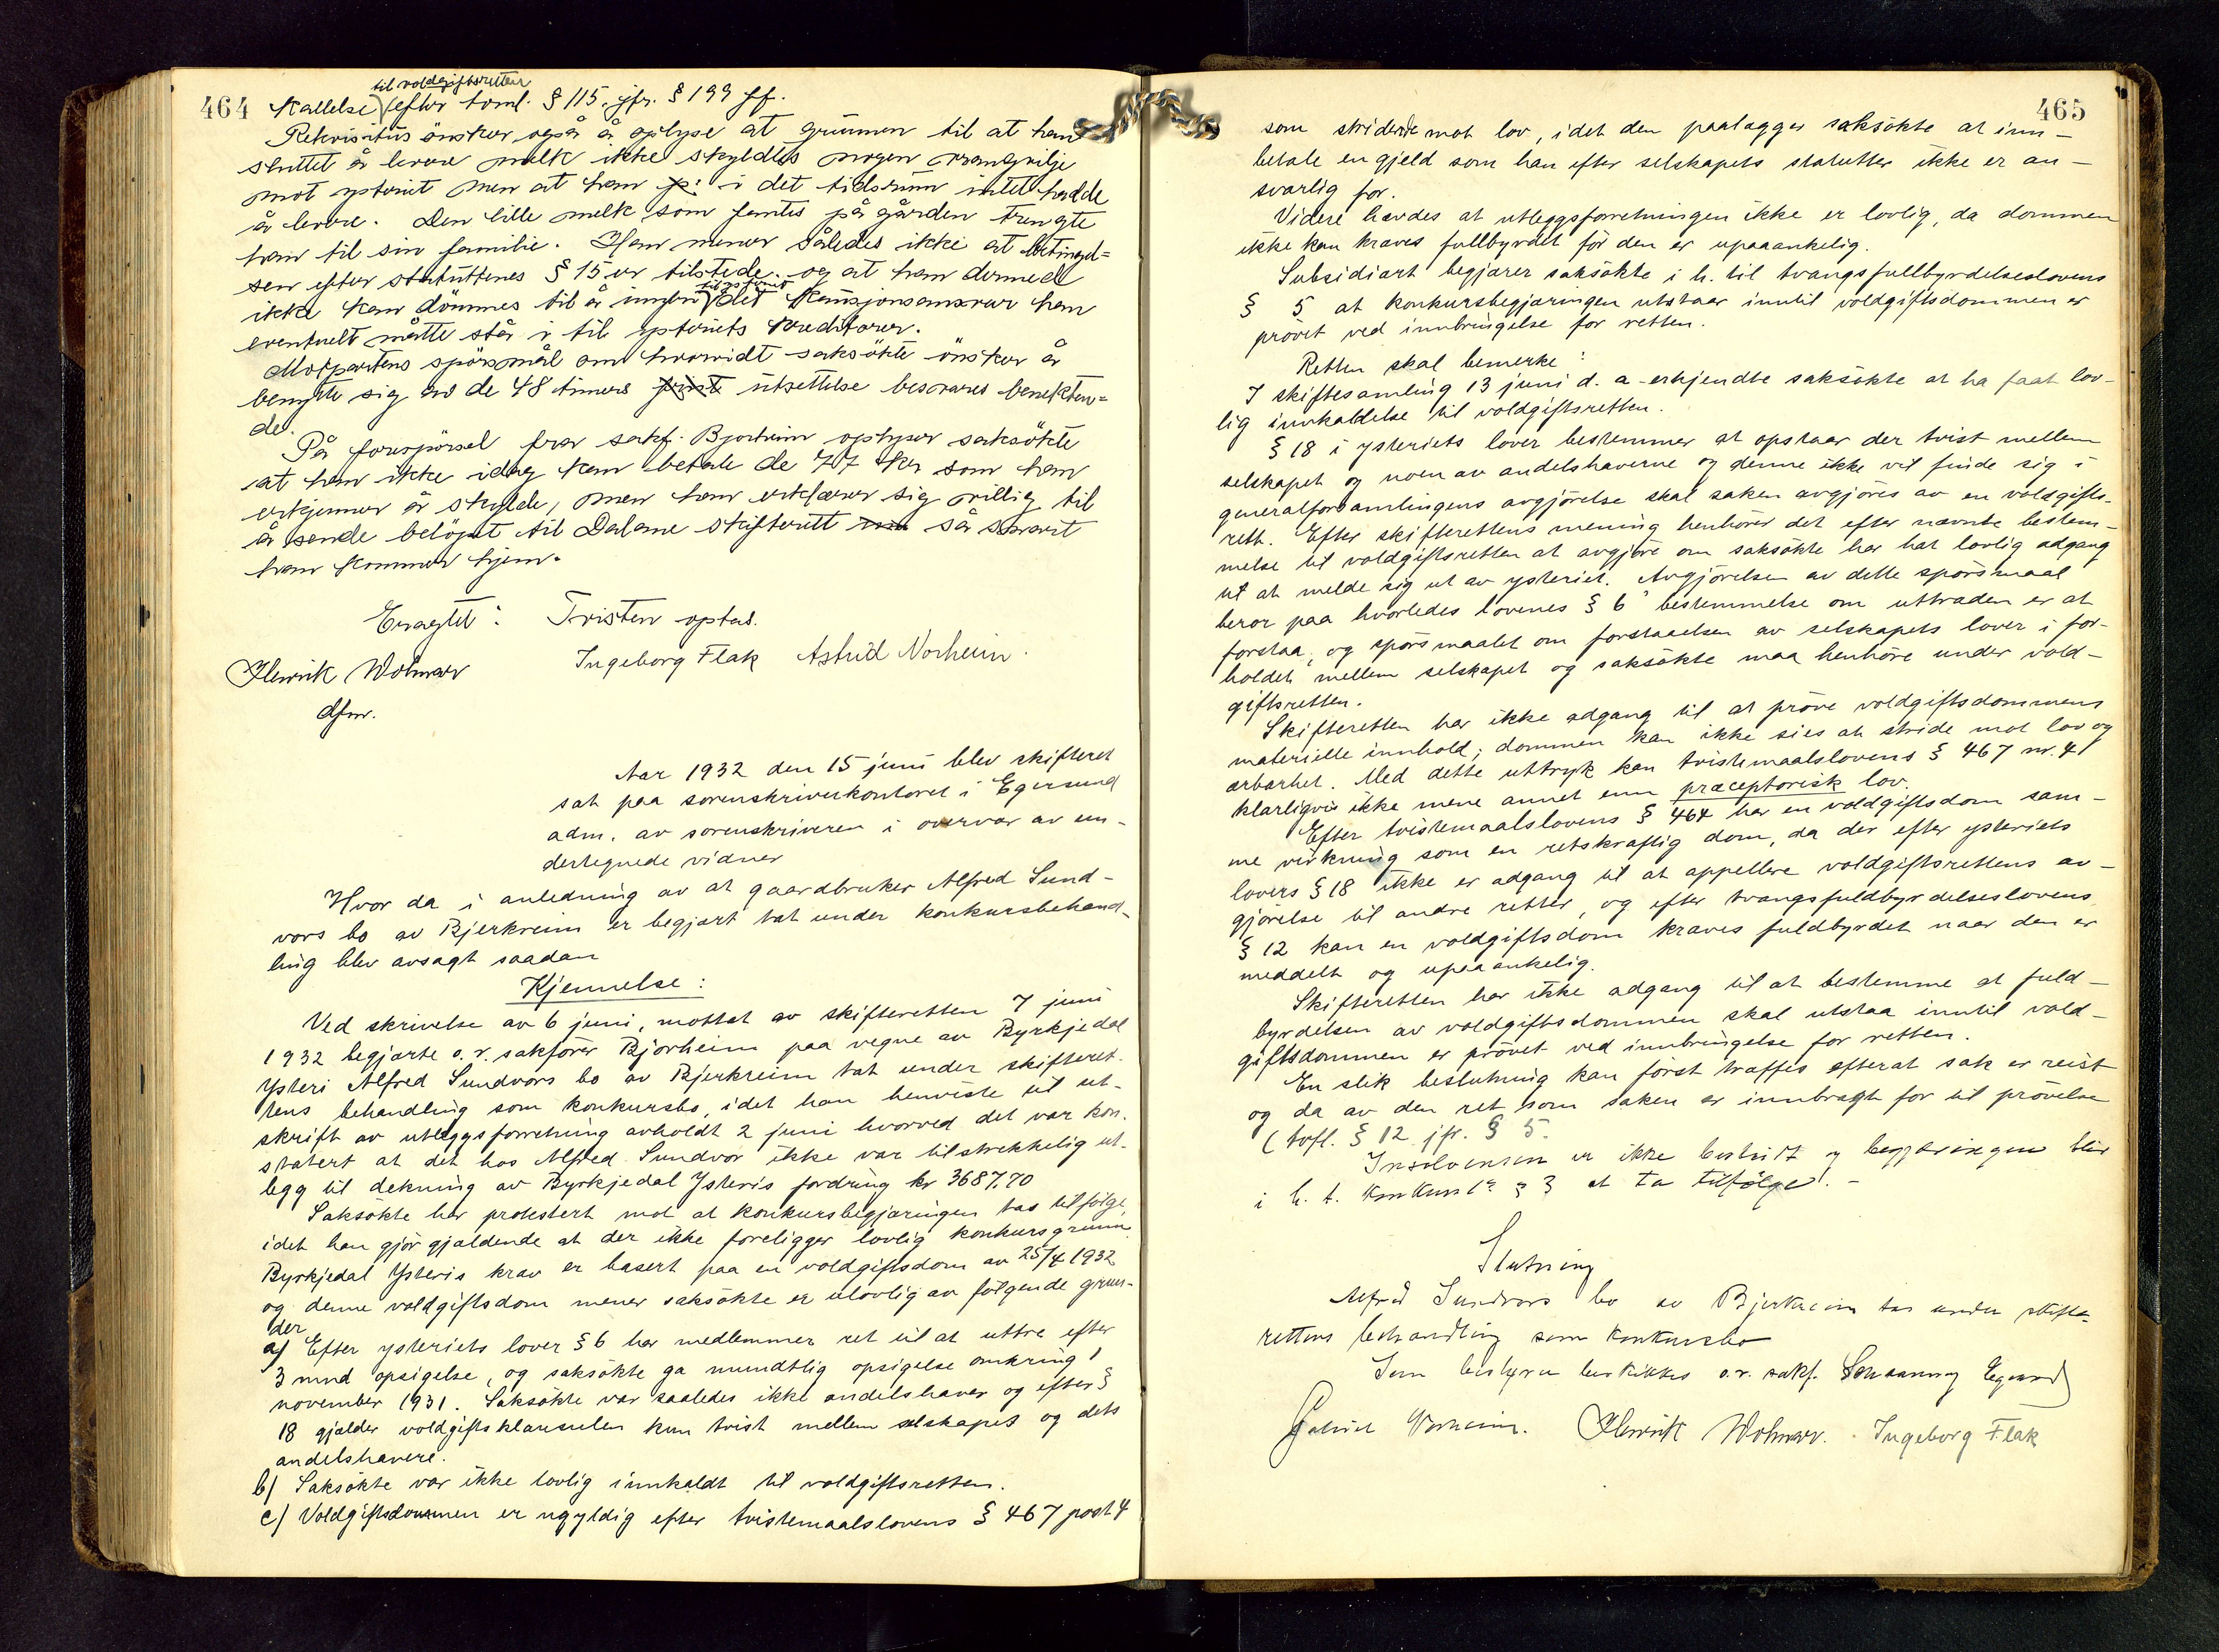 464
til voldgiftsretten
kallelse efter toml. § 115, jfr. § 199 ff.
Rekvisitus önsker også å oplyse at grunnen til at han
sluttet å levere melk ikke skyldtes nogen vrangvilje
mot ysteriet men at han i det tidsrum intet hadde
å levere. Den lille melk som fantes på gården trengte
han til sin familie. Han mener således ikke at betingel=
sen efter statuttenes § 15 er tilstede. og at han dermed
ikke kan dömmes til å innfri det kausjonsansvar han
eventuelt måtte stå i til ysteriets kreditorer.
Motpartens spörsmål om hvorvidt saksökte önsker å
benytte sig av de 48 timers frist utsettelse besvares benekten=
de.
På forespörsel fra sakf. Bjorheim oplyser saksökte
at han ikke idag kan betale de 77 kr som han
erkjenner å skylde, men han erklærer sig villig til
å sende belöpet til Dalane skifterett så snart
han kommer hjem.
Enegtet: Tvisten optas.
Henrik Wolmer Ingeborg Flak Astrid Norheim.
dfm.
Aar 1932 den 15 juni blev skifteret
sat paa sorenskriverkontoret i Egersund
adm. av sorenskriveren i overvær av un-
dertegnede vidner
Hvor da i anledning av at gaardbruker Alfred Sund-
vors bo av Bjerkreim er begjært tat under konkursbehand-
ling blev avsagt saadan
Kjennelse:
Ved skrivelse av 6 juni, mottat av skifteretten 7 juni
1932 begjærte o.r. sakförer Bjorheim paa vegne av Byrkjedal
Ysteri Alfred Sundvors bo av Bjerkreim tat under skifteret-
tens behandling som konkursbo, idet han henviste til ut-
skrift av utleggsforretning avholdt 2 juni hvorved det var kon-
statert at det hos Alfred Sundvor ikke var tilstrekkelig ut-
legg til dekning av Byrkjedal Ysteris fordring kr 3687.70
Saksökte har protestert mot at konkursbegjæringen tas tilfölge,
idet han gjör gjældende at der ikke foreligger lovlig konkursgrunn
Byrkjedal Ysteris krav er basert paa en voldgiftsdom av 25/4 1932
og denne voldgiftsdom mener saksökte er ulovlig av fölgende grun-
der
a) Efter ysteriets lover § 6 har medlemmer ret til at uttre efter
3 mnd opsigelse, og saksökte ga mundtlig opsigelse omkring 1
november 1931. Saksökte var saaledes ikke andelshaver og efter §
18 gjælder voldgiftsklausulen kun tvist mellem selskapet og dets
andelshavere.
b) Saksökte var ikke lovlig innkaldt til voldgiftsretten.
c) Voldgiftsdommen er ugyldig efter tvistemaalslovens § 467 post 4
465
som stridende mot lov, idet den paalægger saksökte at inn-
betale en gjeld som han efter selskapets statutter ikke er an-
svarlig for.
Videre hevdes at utleggsforretningen ikke er lovlig, da dommen
ikke kan kræves fullbyrdet för den er upaaankelig.
Subsidiært begjærer saksökte i h. til tvangsfullbyrdelseslovens
§ 5 at konkursbegjæringen utstaar inntil voldgiftsdommen er
prövet ved innbringelse for retten.
Retten skal bemerke:
I skiftesamling 13 juni d.a. erkjendte saksökte at ha faat lov-
lig innkaldelse til voldgiftsretten.
§ 18 i ysteriets lover bestemmer at opstaar der tvist mellem
selskapet og noen av andelshaverne og denne ikke vil finde sig i
generalforsamlingens avgjörelse skal saken avgjöres av en voldgifts-
rett. Efter skifterettens mening henhörer det efter nævnte bestem-
melse til voldgiftsretten at avgjöre om saksökte har hat lovlig adgang
til at melde sig ut av ysteriet. Avgjörelsen av dette spörsmaal
beror paa hvorledes lovenes § 6 bestemmelse om uttræden er at
forstaa, og spörsmaalet om forstaaelsen av selskapets lover i for-
holdet mellem selskapet og saksökte maa henhöre under vold-
giftsretten.
Skifteretten har ikke adgang til at pröve voldgiftsdommens
materielle innhold; dommen kan ikke sies at stride mot lov og
ærbarhet. Med dette uttryk kan tvistemaalslovens § 467 nr. 4
klarligvis ikke mene annet enn præceptorisk lov.
Efter tvistemaalslovens § 464 har en voldgiftsdom sam-
me virkning som en retskraftig dom, da der efter ysteriets
lovers § 18 ikke er adgang til at appellere voldgiftsrettens av-
gjörelse til andre retter, og efter tvangsfuldbyrdelseslovens
§ 12 kan en voldgiftsdom kræves fuldbyrdet naar den er
meddelt og upaaankelig.
Skifteretten har ikke adgang til at bestemme at fuld-
byrdelsen av voldgiftsdommen skal utstaa inntil vold-
giftsdommen er prövet ved innbringelse for retten.
En slik beslutning kan först træffes efterat sak er reist
og da av den ret som saken er innbragt for til prövelse
(tvfl. § 12 jfr. § 5.
Insolvensen er ikke bestridt og begjæringen blir
i h. t. konkursl. § 3 at ta tilfölge. -
Slutning
Alfred Sundvors bo av Bjerkreim tas under skifte-
rettens behandling som konkursbo
Som bestyrer beskikkes o.r. sakf. Egersund
Astrid Norheim. Henrik Wolmer. Ingeborg Flak